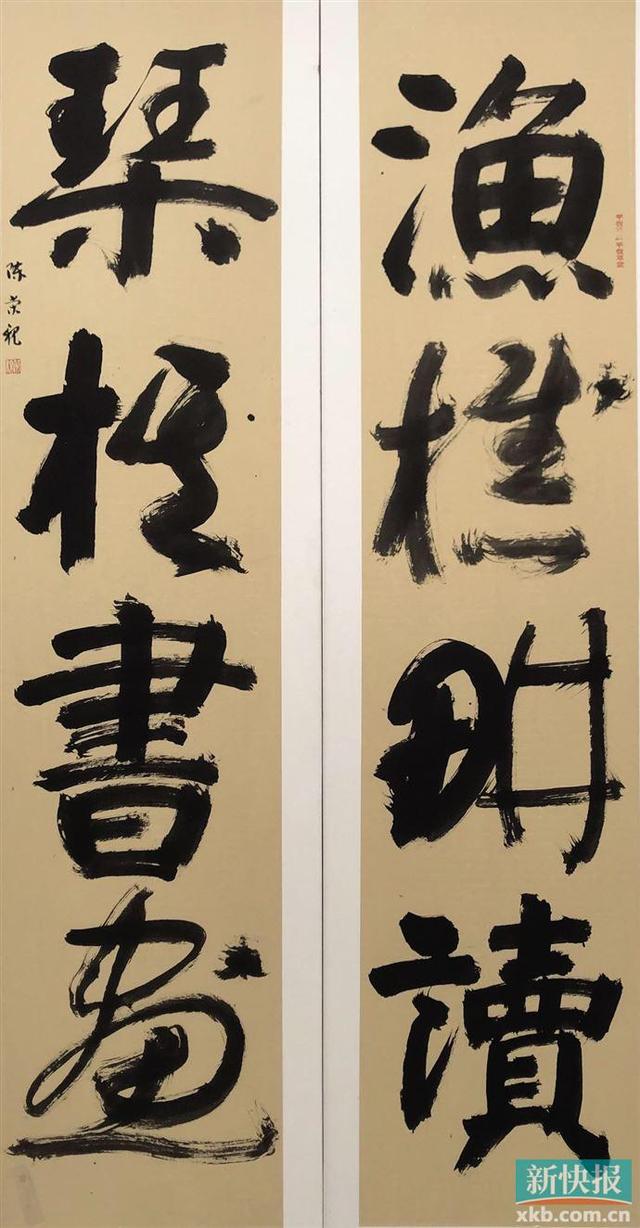 漁樵畊讀
琴棋書畫
新快报
xkb.com.cn